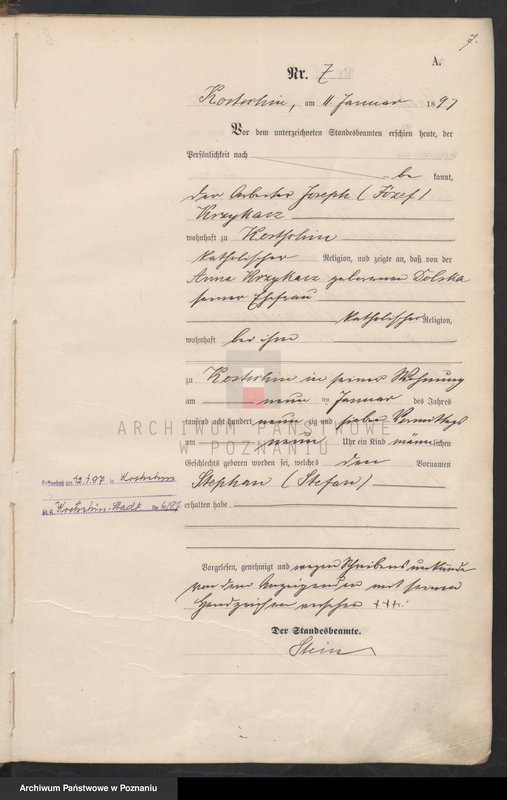 7.
A.
Nr. 7
Kostschin, am 11 Januar 1897
Vor dem unterzeichneten Standesbeamten erschien heute, der
Persönlichkeit nach
be kannt,
der Arbeiter Joseph (Józef)
Krzykacz
wohnhaft zu Kostschin
katholischer Religion, und zeigte an, daß von der
Anna Krzykacz geborenen Dolska
seiner Ehefrau
katholischer Religion,
wohnhaft bei ihm
zu Kostschin in seiner Wohnung
am neun ten Januar des Jahres
tausend acht hundert neun zig und sieben Vormittags
um neun Uhr ein Kind männlichen
Geschlechts geboren worden sei, welches den Vornamen
Stephan (Stefan)
erhalten habe
Gestorben am 12.1.97 in Kostschin
St. R. Kostschin-Stadt No 6/97
Vorgelesen, genehmigt und wegen Schreibensunkunde
von dem Anzeigenden mit seinem
Handzeichen versehen +++.
Der Standesbeamte.
Stein
ARCHIWUM PAŃSTWOWE
W POZNANIU
Archiwum Państwowe w Poznaniu